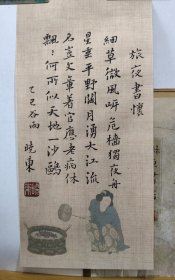 旅夜书懷
细草微風岸危檣獨夜舟
星垂平野闊月湧大江流
名豈文章著官應老病休
飄飄何所似天地一沙鷗
乙巳谷雨 晓東